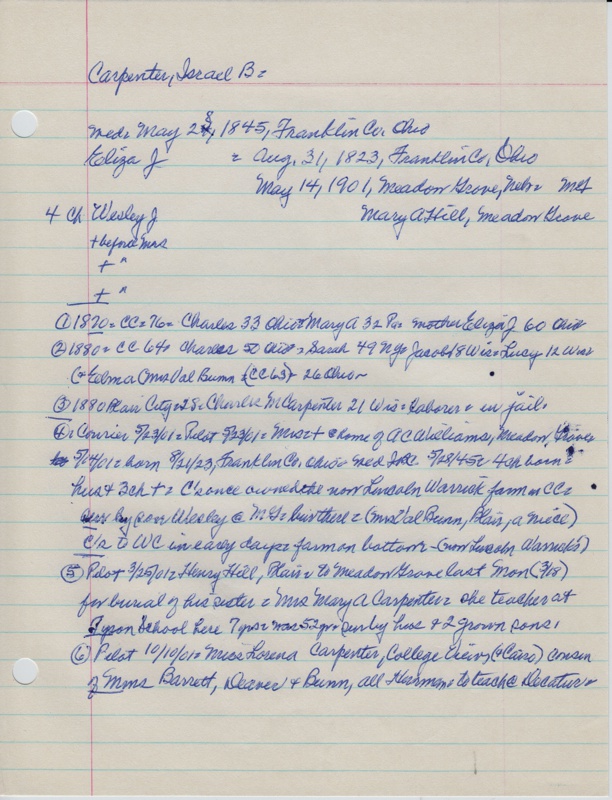 Carpenter, Israel B =
med = May 28, 1845, Franklin Co. Ohio
Eliza J = Aug. 31, 1823, Franklin Co, Ohio
May 14, 1901, Meadow Grove, Nebr = Met
4 Ch Wesley J Mary A Hill, Meadow Grove
+ before Mrs
+ "
+ "
① 1870 = CC = 76 = Charles 33 Ohio = Mary A 32 Pa = mother Eliza J 60 Ohio
② 1880 = CC 64 = Charles 50 Ohio = Sarah 49 Ny = Jacob 18 Wis = Lucy 12 Wis
(= Mrs Val Bunn (CC 63) 26 Ohio
③ 1880 Blair City = 28 = Charles M Carpenter 21 Wis = laborer = in jail.
④ = Courier 5/23/01 = Pilot 5/23/01 = Mrs + @ home of A C Williams, Meadow Grove
5/14/01 = born 8/31/23, Franklin Co. Ohio = med Israel 5/28/45 = 4 ch born =
hus + 3 ch + = C once owned the now Lincoln Warrick farm in CC =
by son Wesley @ MG = bur there = (Mrs Val Bunn, Blair, a niece)
C's to WC in early days = farm on bottom = (now Lincoln Warrick's)
⑤ Pilot 3/25/01 = Henry Hill, Blair = to Meadow Grove last Mon (3/18)
for burial of his sister = Mrs Mary A Carpenter = she teacher at
Tyson School here 7 yrs = was 52 yr = sur by hus + 2 grown sons.
⑥ Pilot 10/10/01 = Miss Lorena Carpenter, College View, cousin
of Mmes Barrett, Deaver + Bunn, all Herman = to teach @ Decatur =